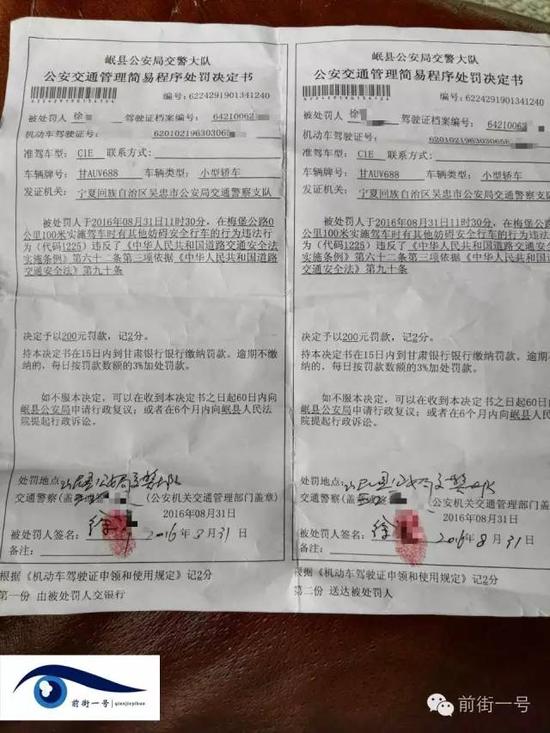 岷县公安局交警大队
公安交通管理简易程序处罚决定书
6224291901341240
编号：6224291901341240
被处罚人 徐 驾驶证档案编号：64210062
机动车驾驶证号：620102196303065
准驾车型：C1E 联系方式：
车辆牌号：甘AUV688 车辆类型：小型轿车
发证机关：宁夏回族自治区吴忠市公安局交通警察支队
被处罚人于2016年08月31日11时30分，在梅堡公路0
公里100米实施驾车时有其他妨碍安全行车的行为违法行
为（代码1225）违反了《中华人民共和国道路交通安全法
实施条例》第六十二条第三项依据《中华人民共和国道路
交通安全法》第九十条
决定予以200元罚款，记2分。
持本决定书在15日内到甘肃银行银行缴纳罚款。逾期不缴
纳的，每日按罚款数额的3%加处罚款。
如不服本决定，可以在收到本决定书之日起60日内向
岷县公安局申请行政复议；或者在6个月内向岷县人民法
院提起行政诉讼。
处罚地点：岷县公安局交警大队
交通警察(盖 (公安机关交通管理部门盖章)
2016年08月31日
被处罚人签名：徐 2016年8月31日
备注：
根据《机动车驾驶证申领和使用规定》记2分
第一份 由被处罚人交银行
岷县公安局交警大队
公安交通管理简易程序处罚决定书
6224291901341240
编号：6224291901341240
被处罚人 徐 驾驶证档案编号：64210062
机动车驾驶证号：620102196303065
准驾车型：C1E 联系方式：
车辆牌号：甘AUV688 车辆类型：小型轿车
发证机关：宁夏回族自治区吴忠市公安局交通警察支队
被处罚人于2016年08月31日11时30分，在梅堡公路0
公里100米实施驾车时有其他妨碍安全行车的行为违法行
为（代码1225）违反了《中华人民共和国道路交通安全法
实施条例》第六十二条第三项依据《中华人民共和国道路
交通安全法》第九十条
决定予以200元罚款，记2分。
持本决定书在15日内到甘肃银行银行缴纳罚款。逾期不缴
纳的，每日按罚款数额的3%加处罚款。
如不服本决定，可以在收到本决定书之日起60日内向
岷县公安局申请行政复议；或者在6个月内向岷县人民法
院提起行政诉讼。
处罚地点：岷县公安局交警大队
交通警察(盖 (公安机关交通管理部门盖章)
2016年08月31日
被处罚人签名：徐 2016年8月31日
备注：
根据《机动车驾驶证申领和使用规定》记2分
第二份 送达被处罚人
前街一号
qianjieyihao
前街一号